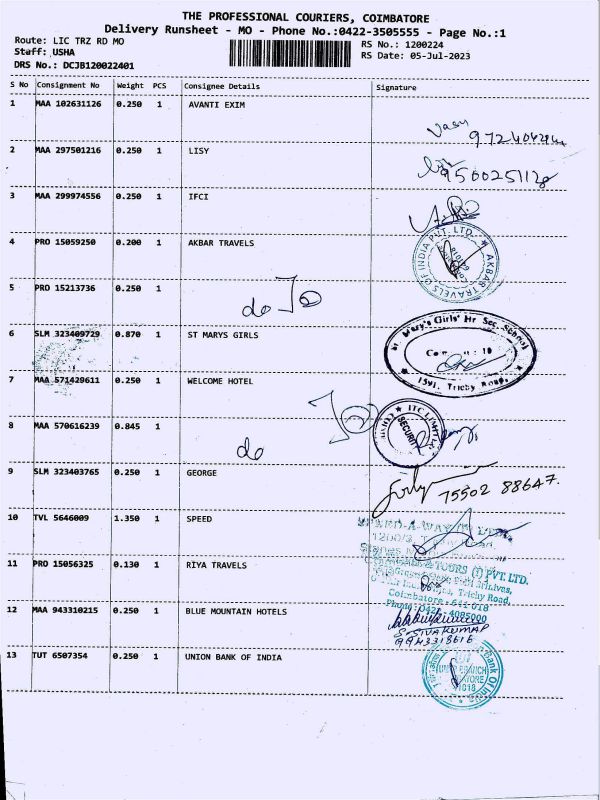 THE PROFESSIONAL COURIERS, COIMBATORE
Delivery Runsheet - MO - Phone No.:0422-3505555 - Page No.:1
Route: LIC TRZ RD MO
RS No.: 1200224
Staff: USHA
RS Date: 05-Jul-2023
DRS No.: DCJB120022401
S No Consignment No Weight PCS Consignee Details Signature
1 MAA 102631126 0.250 1 AVANTI EXIM
Vasu
2 MAA 297501216 0.250 1 LISY
3 MAA 299974556 0.250 1 IFCI
4 PRO 15059250 0.200 1 AKBAR TRAVELS
AKBAR TRAVELS OF INDIA PVT. LTD.
5 PRO 15213736 0.250 1
do
6 SLM 323409729 0.870 1 ST MARYS GIRLS
St. Mary's Girls' Hr Sec. School
1591, Trichy Road,
7 MAA 571429611 0.250 1 WELCOME HOTEL
ITC LIMITED
SECURITY
8 MAA 570616239 0.845 1
do
9 SLM 323403765 0.250 1 GEORGE
75502 88647.
10 TVL 5646009 1.350 1 SPEED
SPEED-A-WAY (P) LTD
11 PRO 15056325 0.130 1 RIYA TRAVELS
& TOURS (I) PVT. LTD.
Trichy Road,
Coimbatore - 641 018
Phone: 0422 - 4085000
12 MAA 943310215 0.250 1 BLUE MOUNTAIN HOTELS
S. SIVAKUMAR
9943318616
13 TUT 6507354 0.250 1 UNION BANK OF INDIA